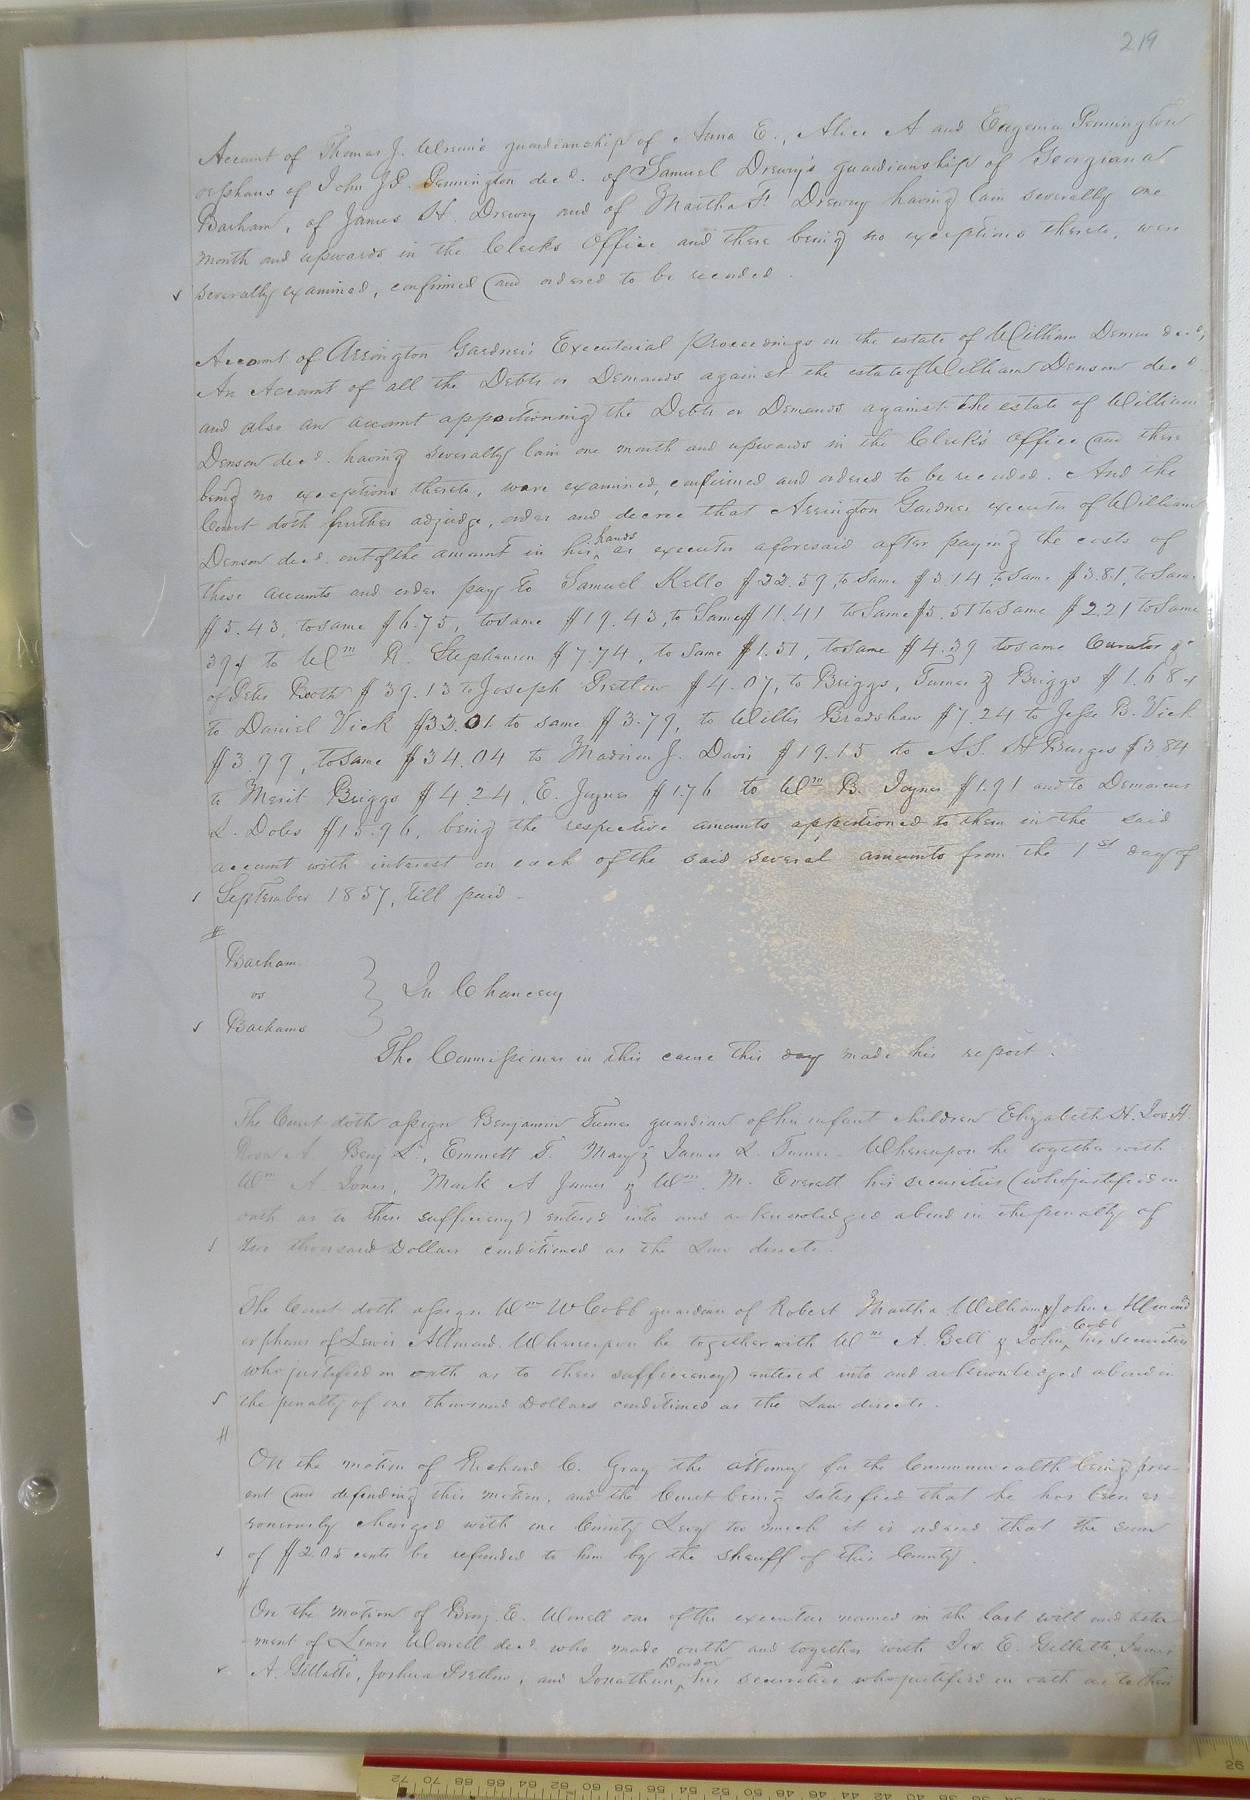 219
Account of Thomas J. Wrenn's guardianship of Anna E., Alice A and Eugenia Pennington
orphans of John J P. Pennington decd. of Samuel Drewry's guardianship of Georgiana
Barham, of James H. Drewry and of Martha F. Drewry having lain severally one
month and upwards in the Clerks Office and there being no exceptions thereto, were
severally examined, confirmed and ordered to be recorded.
Account of Arrington Gardner's Executorial proceedings on the estate of William Denson decd,
An Account of all the Debts or Demands against the estate of William Denson decd
and also an account apportioning the Debts or Demands against the estate of William
Denson decd. having severally lain one month and upwards in the Clerk's office and there
being no exceptions thereto, were examined, confirmed and ordered to be recorded. And the
Court doth further adjudge, order and decree that Arrington Gardner executor of William
Denson decd. out of the amount in his hands as executor aforesaid after paying the costs of
these accounts and order pay to Samuel Kello $32.59, to Same $3.14 to same $3.81, to Same
$5.43, to same $6.75, to same $19.43, to Same $11.41 to Same $5.51 to Same $2.21 to Same
39¢ to Wm R. Stephenson $7.74, to Same $1.51, to same $4.39 to same Curator &c
of Peter Booth $39.13 to Joseph Pretlow $4.07, to Briggs, Turner & Briggs $1.68
to Daniel Vick $32.01 to same $3.79, to Willis Bradshaw $7.24 to Jesse B. Vick
$3.99, to same $34.04 to Madison J. Davis $19.15 to A.S. H Burges $3.84
to Merit Briggs $4.24, E. Joyner $1.76 to Wm B. Joyner $1.91 and to Demarcus
L. Doles $15.96, being the respective amounts apportioned to them in the said
account with interest on each of the said several amounts from the 1st day of
September 1857, till paid.
Barham
vs
In Chancery
Barhams
The Commissioner in this cause this day made his report.
The Court doth assign Benjamin Turner guardian of his infant children Elizabeth H. Jos H.
Rosa A Benj L., Emmett T. Mary & James L. Turner. Whereupon he together with
Wm A Jones, Mark A James & Wm. M. Everett his securities (who justified on
oath as to their sufficiency) entered into and acknowledged a bond in the penalty of
thousand Dollars conditioned as the Law directs.
The Court doth assign Wm W Cobb guardian of Robert Martha William & John Allmond
orphans of Lewis Allmond. Whereupon he together with Wm A. Bell & John Cobb his securities
who justified on oath as to their sufficiency) entered into and acknowledged a bond in
the penalty of one thousand Dollars conditioned as the Law directs.
On the motion of Richard C. Gray the attorney for the Commonwealth being pres-
ent and defending this motion, and the Court being satisfied that he has been er
roneously charged with one County Levy too much it is ordered that the sum
of $2.05 cents be refunded to him by the sheriff of this County.
On the motion of Benj. E. Worrell one of the executors named in the last will and testa
-ment of Lewis Worrell decd. who made oath and together with Jos. E. Gillette, James
A. Gillette, Joshua Pretlow, and Jonathan Denson his securities who justified on oath as to their